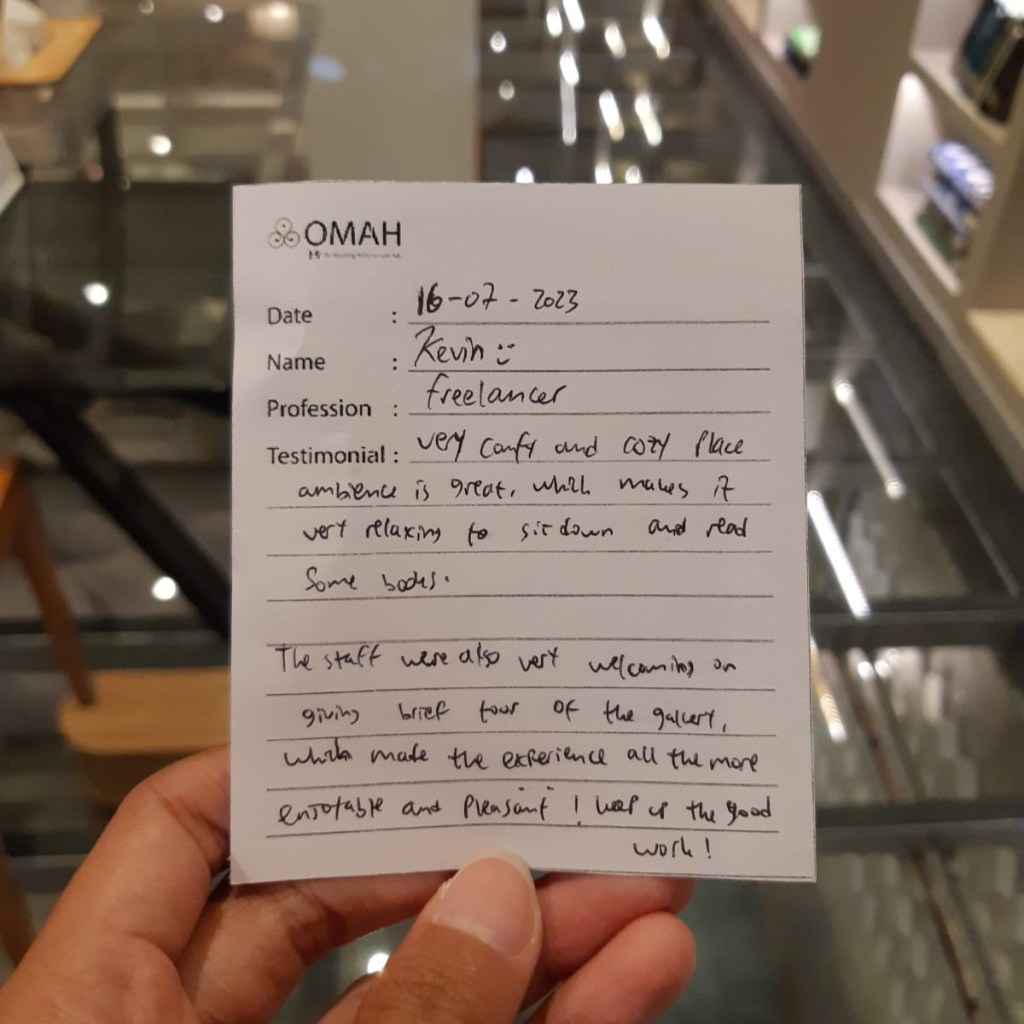 OMAH
Date : 16-07-2023
Name : Kevin :)
Profession : freelancer
Testimonial : very comfy and cozy place
ambience is great, which makes it
very relaxing to sit down and read
some books.
The staff were also very welcoming on
giving brief tour of the gallery,
which made the experience all the more
enjoyable and pleasant! keep up the good
work!